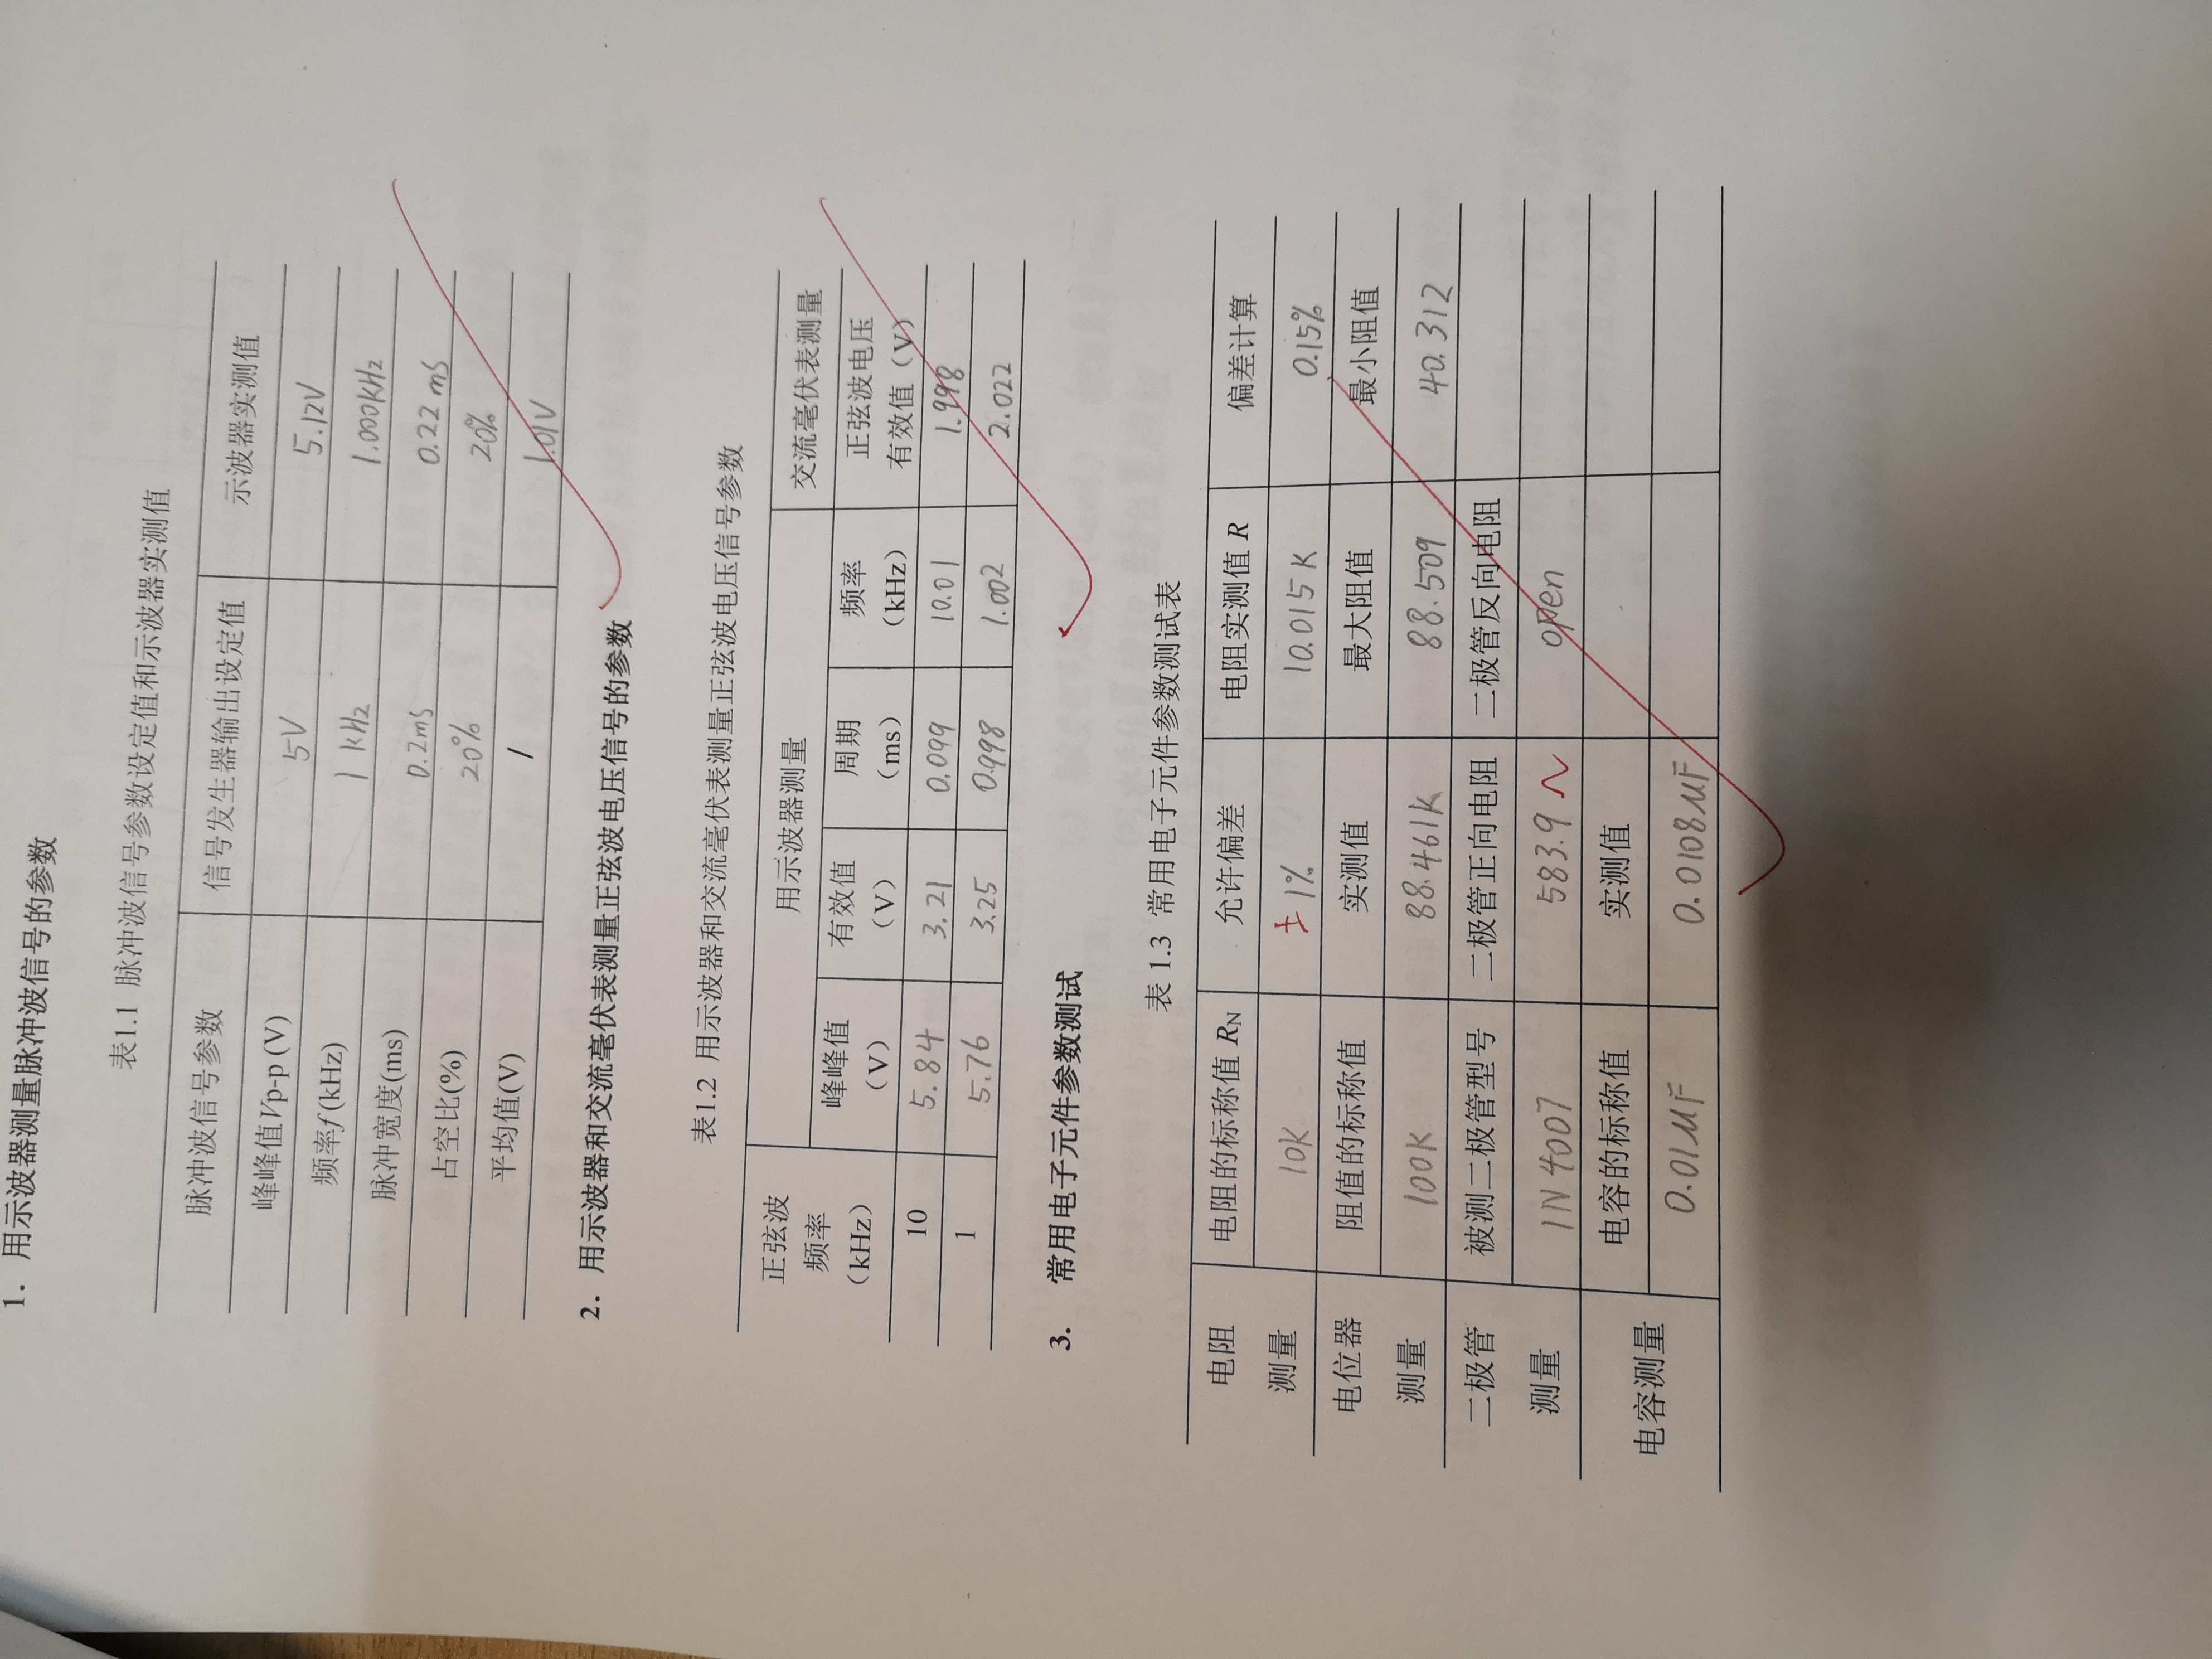 1. 用示波器测量脉冲波信号的参数
表1.1 脉冲波信号参数设定值和示波器实测值
脉冲波信号参数 信号发生器输出设定值 示波器实测值
峰峰值Vp-p(V) 5V 5.12V
频率f(kHz) 1 kHz 1.000kHz
脉冲宽度(ms) 0.2ms 0.22 ms
占空比(%) 20% 20%
平均值(V) / 1.01V
2. 用示波器和交流毫伏表测量正弦波电压信号的参数
表1.2 用示波器和交流毫伏表测量正弦波电压信号参数
正弦波频率(kHz) 用示波器测量 交流毫伏表测量
峰峰值(V) 有效值(V) 周期(ms) 频率(kHz) 正弦波电压有效值(V)
10 5.84 3.21 0.099 10.01 1.998
1 5.76 3.25 0.998 1.002 2.022
3. 常用电子元件参数测试
表 1.3 常用电子元件参数测试表
电阻测量 电阻的标称值 RN 允许偏差 电阻实测值 R 偏差计算
10K ±1% 10.015K 0.15%
电位器测量 阻值的标称值 实测值 最大阻值 最小阻值
100K 88.461K 88.509 40.312
二极管测量 被测二极管型号 二极管正向电阻 二极管反向电阻
1N4007 583.9 open
电容测量 电容的标称值 实测值
0.01μF 0.0108μF